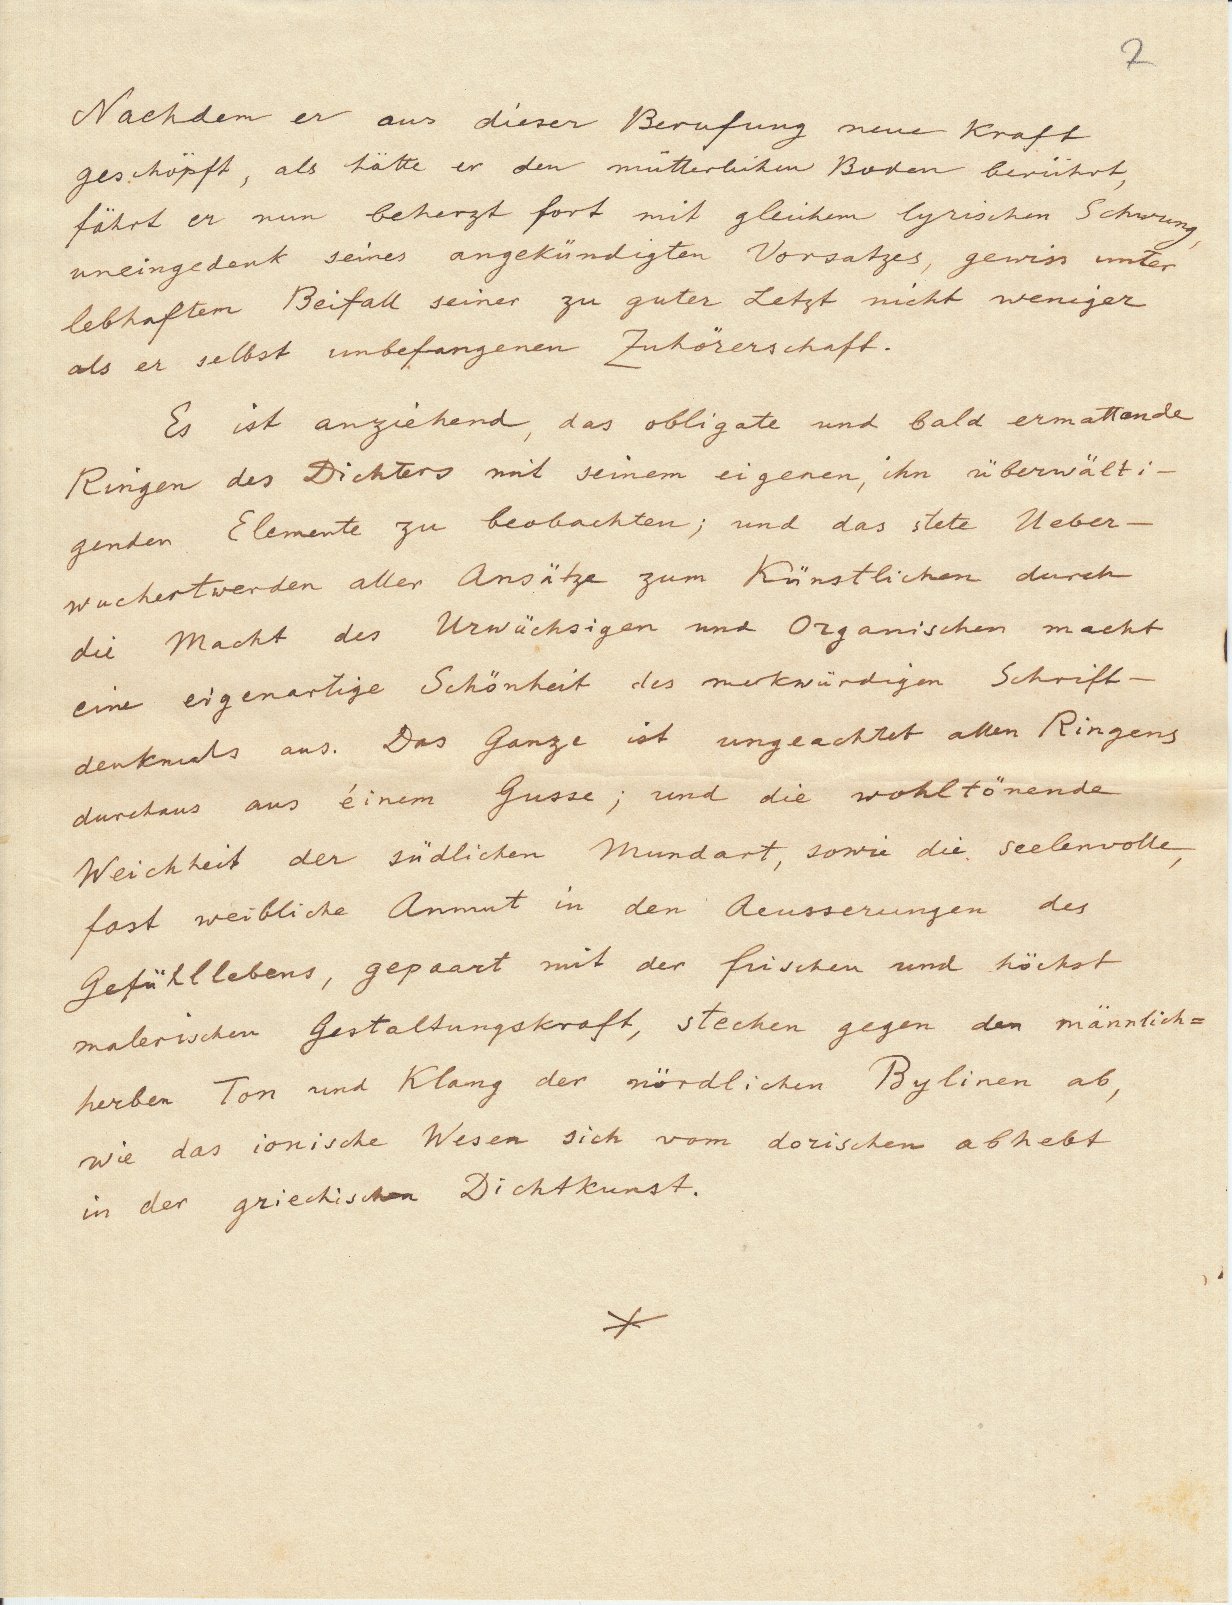 7
Nachdem er aus dieser Berufung neue Kraft
geschöpft, als hätte er den mütterlichen Boden berührt,
fährt er nun beherzt fort mit gleichem lyrischen Schwung,
uneingedenk seines angekündigten Vorsatzes, gewiss unter
lebhaftem Beifall seiner zu guter Letzt nicht weniger
als er selbst unbefangenen Zuhörerschaft.
Es ist anziehend, das obligate und bald ermattende
Ringen des Dichters mit seinem eigenen, ihn überwälti-
genden Elemente zu beobachten; und das stete Ueber-
wuchertwerden aller Ansätze zum Künstlichen durch
die Macht des Urwüchsigen und Organischen macht
eine eigenartige Schönheit des merkwürdigen Schrift-
denkmals aus. Das Ganze ist ungeachtet allen Ringens
durchaus aus éinem Gusse; und die wohltönende
Weichheit der südlichen Mundart, sowie die seelenvolle,
fast weibliche Anmut in den Aeusserungen des
Gefühllebens, gepaart mit der frischen und höchst
malerischen Gestaltungskraft, stechen gegen den männlich=
herben Ton und Klang der nördlichen Bylinen ab,
wie das ionische Wesen sich vom dorischen abhebt
in der griechischen Dichtkunst.